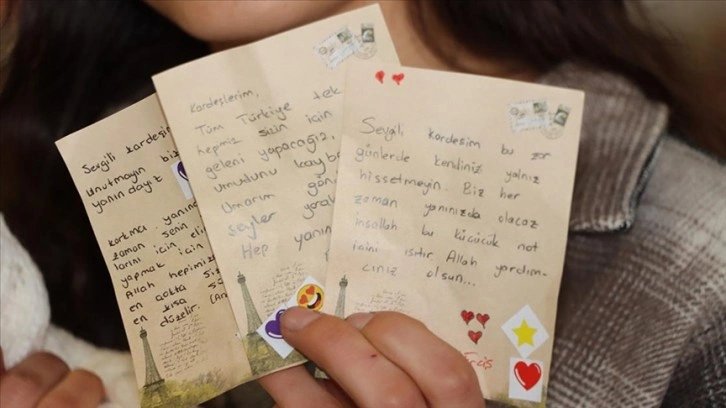 Sevgili kardeşim
unutmayın biz
yanındayız
korkma yanında
zaman senin
ların için
yapmak için
Allah hepimize
en
en kısa
düzelir.
Kardeşlerim,
Tüm Türkiye tek
hepimiz sizin için
geleni yapacağız,
umudunu kaybe
Umarım
şeyler
Hep yanın
Sevgili kardeşim bu zor
günlerde kendiniz yalnız
hissetmeyin. Biz her
zaman yanınızda olacaz
inşallah bu küçücük not
içini ısıtır Allah yardım-
cınız olsun...